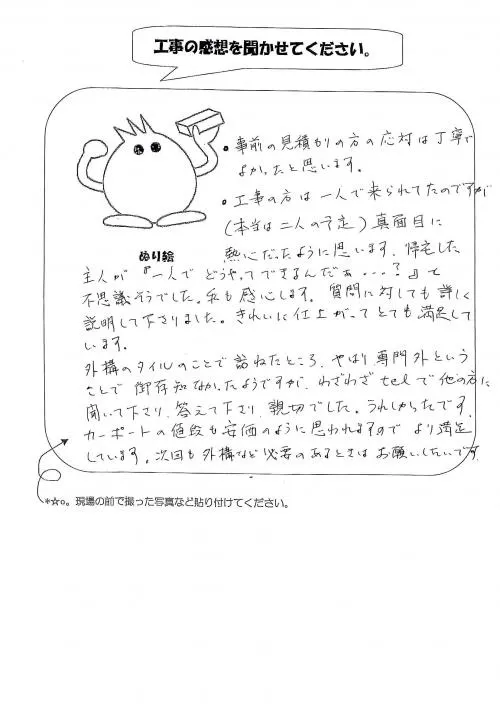 工事の感想を聞かせてください。
。事前の見積もりの方の応対は丁寧で
よかったと思います。
。工事の方は一人で来られてたのですが
(本当は二人の予定)真面目に
熱心だったように思います。帰宅した
ぬり絵
主人が『一人でどうやってできるんだぁ・・・?』と
不思議そうでした。私も感心します。質問に対しても詳しく
説明して下さりました。きれいに仕上がってとても満足して
います。
外構のタイルのことで訪ねたところ、やはり専門外という
ことで御存知なかったようですが、わざわざtelで他の方に
聞いて下さり、答えて下さり、親切でした。うれしかったです。
カーポートの値段も安価のように思われますので より満足
しています。次回も外構など必要のあるときはお願いしたいです
*☆○。現場の前で撮った写真など貼り付けてください。